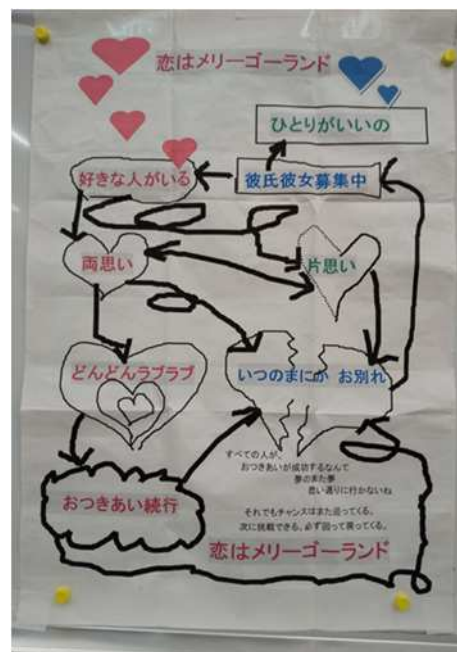 恋はメリーゴーランド
ひとりがいいの
好きな人がいる
彼氏彼女募集中
両思い
片思い
どんどんラブラブ
いつのまにか お別れ
すべての人が、
おつきあいが成功するなんて
夢のまた夢
思い通りに行かないね
おつきあい続行
それでもチャンスはまた巡ってくる。
次に挑戦できる。必ず回って戻ってくる。
恋はメリーゴーランド